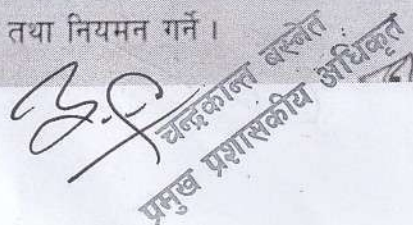 तथा नियमन गर्ने ।
चन्द्रकान्त बस्नेत
प्रमुख प्रशासकीय अधिकृत